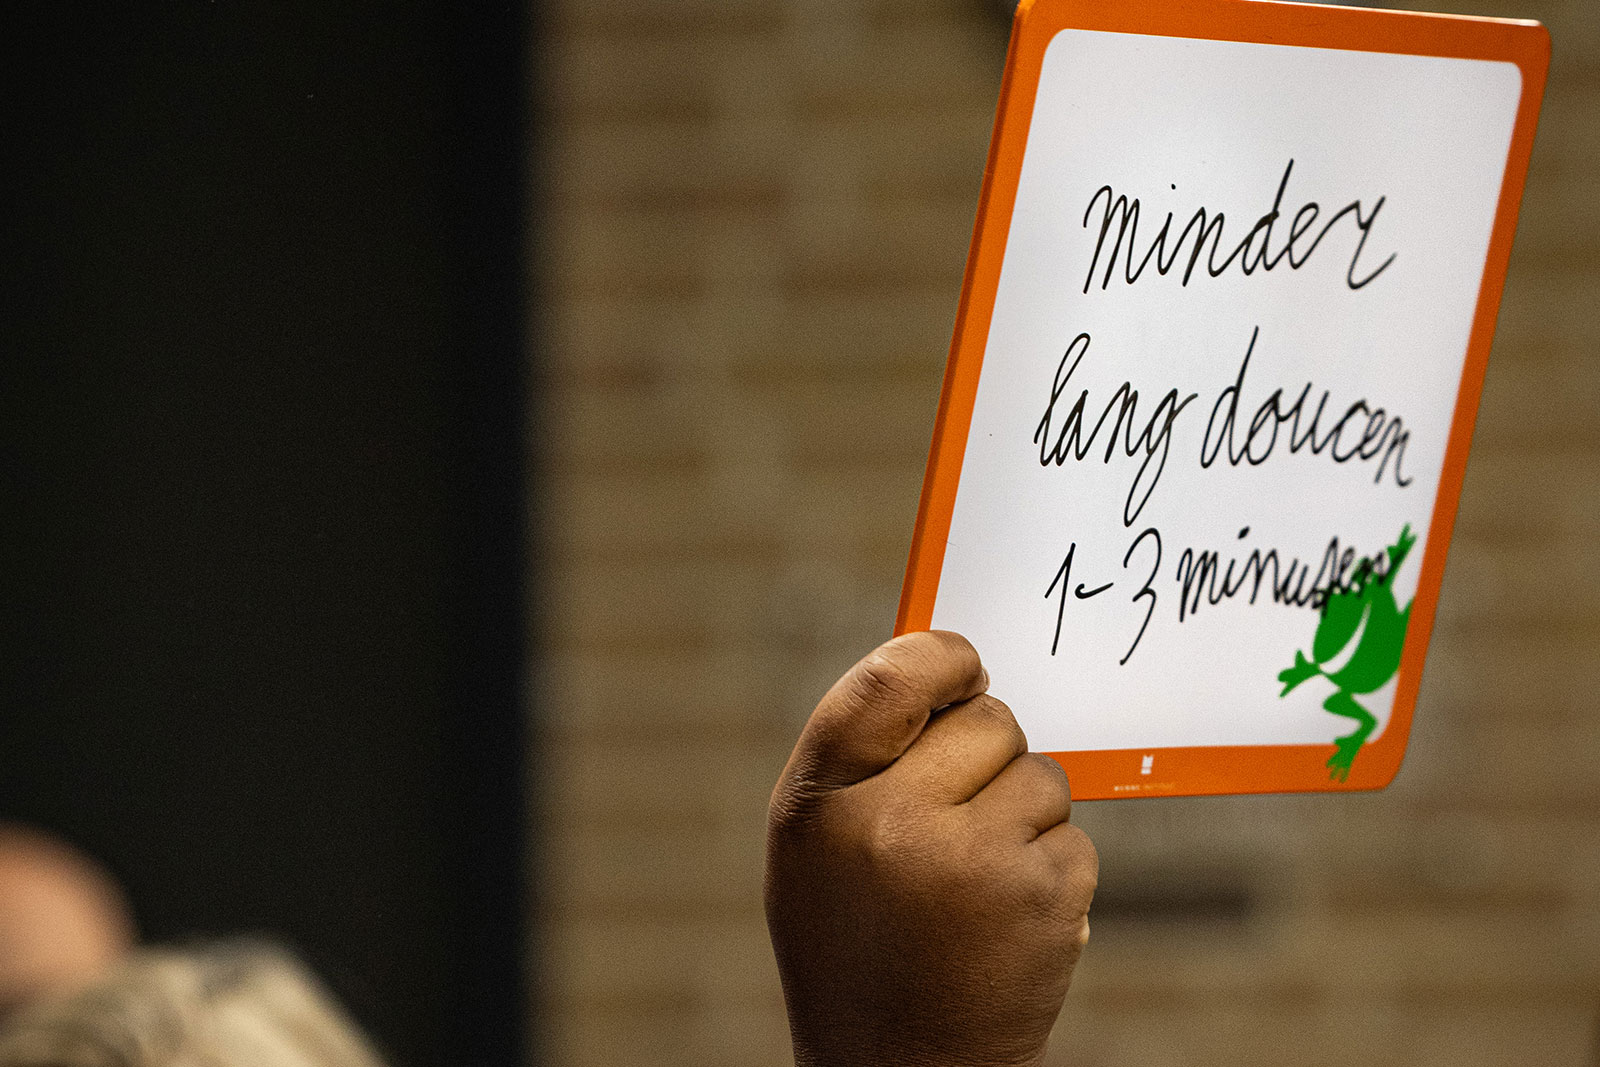 minder
lang doucen
1-3 minuten